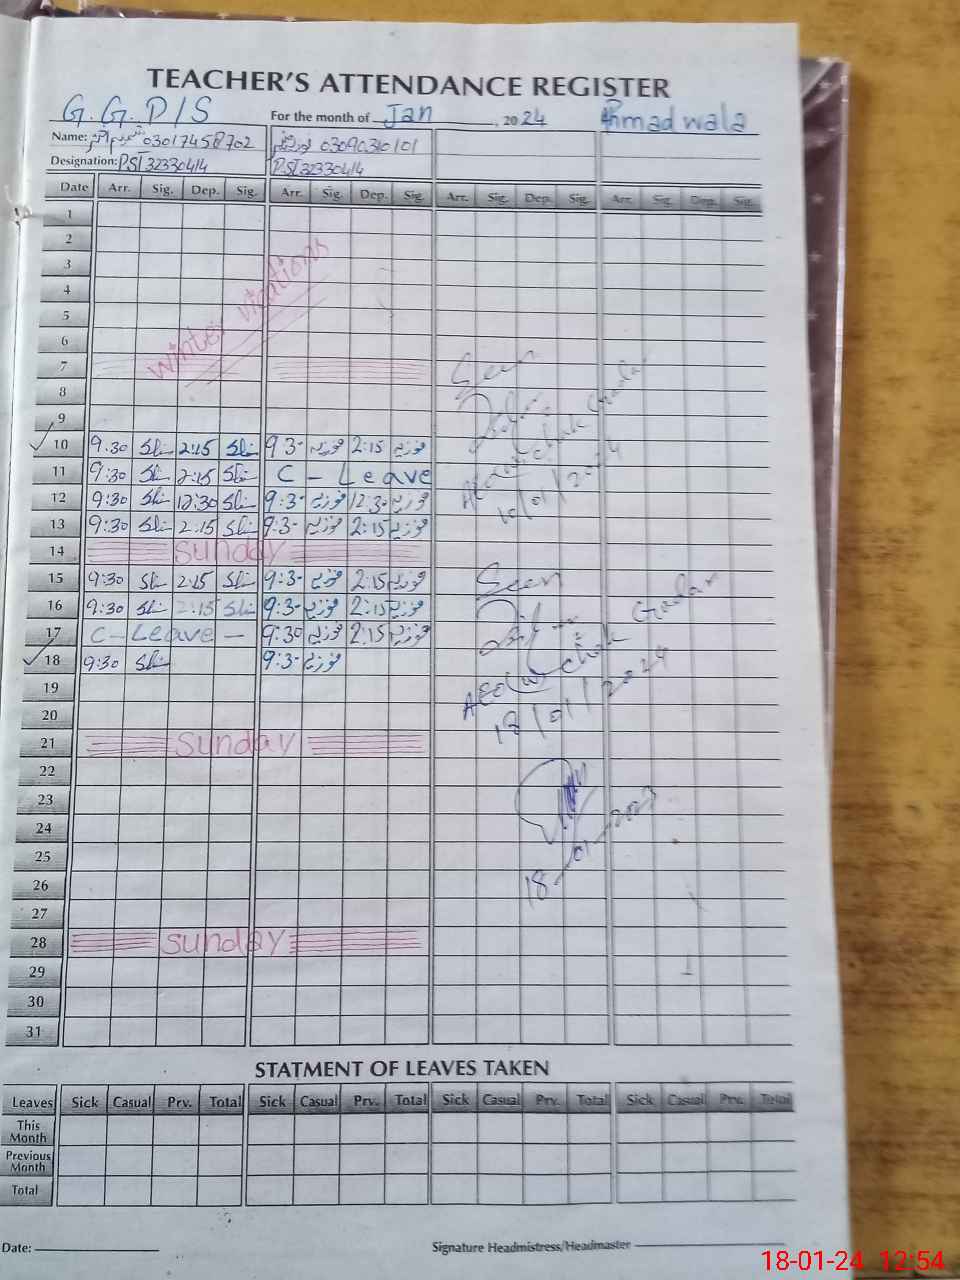 TEACHER'S ATTENDANCE REGISTER
G.G.P/S For the month of Jan , 2024 Ahmad wala
Name: 03017458702 03090310101
Designation: PST 32330414 PST 32330414
Date Arr. Sig. Dep. Sig. Arr. Sig. Dep. Sig. Arr. Sig. Dep. Sig. Arr. Sig. Dep. Sig.
1
2
3
4
5
6
winter vications
7
8
9
Seen
10 9.30 2:15 9 3- فوزیہ 2:15 فوزیہ
11 9:30 2:15 C - Leave
10/01/2024
12 9:30 12:30 9:3- فوزیہ 12:3- فوزیہ
13 9:30 2:15 9:3- فوزیہ 2:15 فوزیہ
14 Sunday
15 9:30 2:15 9:3- فوزیہ 2:15 فوزیہ
Seen
16 9:30 2:15 9:3- فوزیہ 2:15 فوزیہ
17 C-Leave - 9:30 فوزیہ 2:15 فوزیہ
18 9:30 9:3- فوزیہ
AEO(W) chak Gadar
18/01/2024
19
20
21 Sunday
22
23
24
25
18-01-2023
26
27
28 Sunday
29
30
31
STATMENT OF LEAVES TAKEN
Leaves Sick Casual Prv. Total Sick Casual Prv. Total Sick Casual Prv. Total Sick Casual Prv. Total
This Month
Previous Month
Total
Date: Signature Headmistress/Headmaster
18-01-24 12:54